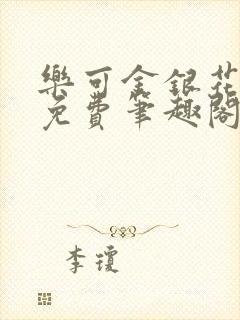 樂可金銀花
免費筆趣閣
李瓊